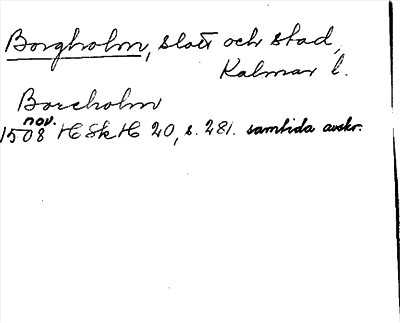 Borgholm, slott och stad,
Kalmar l.
Borcholm
nov.
1508 HSkH 20, s. 281. samtida avskr.